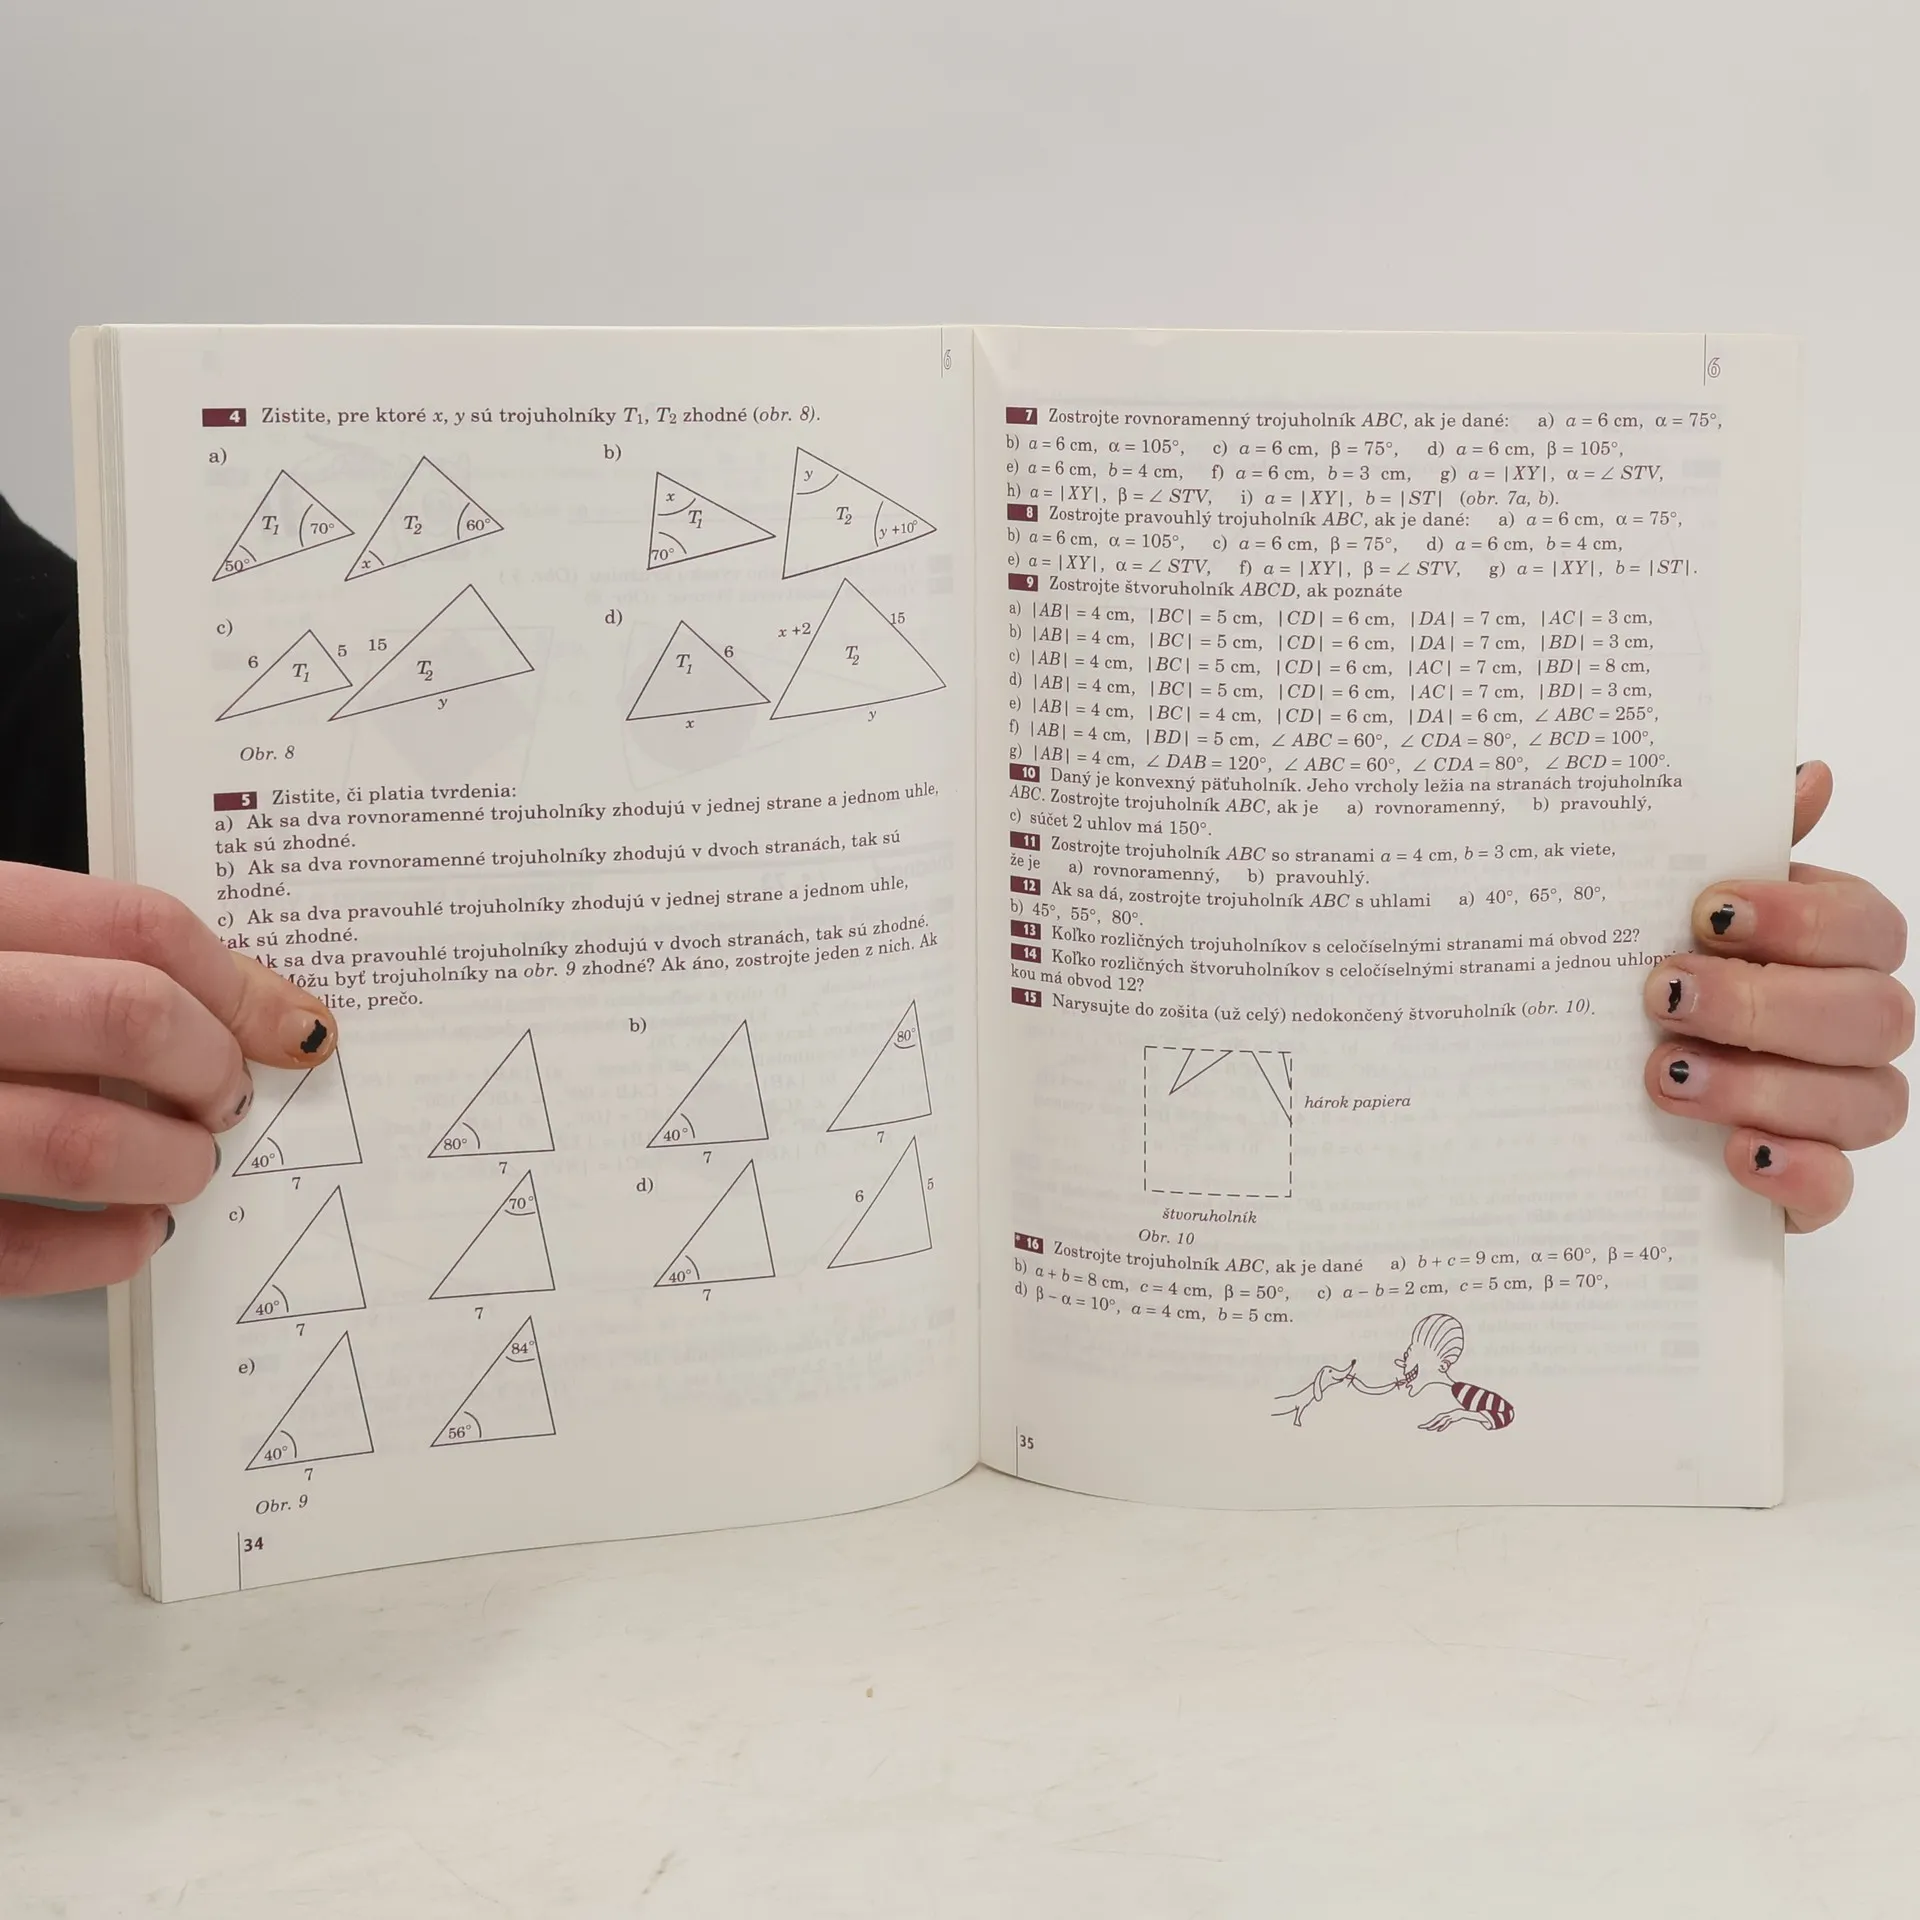 6
4 Zistite, pre ktoré x, y sú trojuholníky T₁, T₂ zhodné (obr. 8).
a)
b)
T₁ 70° 50°
T₂ 60° x
x T₁ 70°
y T₂ y +10°
c)
d)
6 T₁ 5
15 T₂ y
T₁ 6 x
x +2 T₂ 15 y
Obr. 8
5 Zistite, či platia tvrdenia:
a) Ak sa dva rovnoramenné trojuholníky zhodujú v jednej strane a jednom uhle,
tak sú zhodné.
b) Ak sa dva rovnoramenné trojuholníky zhodujú v dvoch stranách, tak sú
zhodné.
c) Ak sa dva pravouhlé trojuholníky zhodujú v jednej strane a jednom uhle,
tak sú zhodné.
Ak sa dva pravouhlé trojuholníky zhodujú v dvoch stranách, tak sú zhodné.
Môžu byť trojuholníky na obr. 9 zhodné? Ak áno, zostrojte jeden z nich. Ak
prečo.
40° 7
80° 7
b)
40° 7
80° 7
c)
40° 7
70° 7
d)
40° 7
6 5
e)
40° 7
84° 56°
Obr. 9
34
6
7 Zostrojte rovnoramenný trojuholník ABC, ak je dané: a) a = 6 cm, α = 75°,
b) a = 6 cm, α = 105°, c) a = 6 cm, β = 75°, d) a = 6 cm, β = 105°,
e) a = 6 cm, b = 4 cm, f) a = 6 cm, b = 3 cm, g) a = |XY|, α = ∠ STV,
h) a = |XY|, β = ∠ STV, i) a = |XY|, b = |ST| (obr. 7a, b).
8 Zostrojte pravouhlý trojuholník ABC, ak je dané: a) a = 6 cm, α = 75°,
b) a = 6 cm, α = 105°, c) a = 6 cm, β = 75°, d) a = 6 cm, b = 4 cm,
e) a = |XY|, α = ∠ STV, f) a = |XY|, β = ∠ STV, g) a = |XY|, b = |ST|.
9 Zostrojte štvoruholník ABCD, ak poznáte
a) |AB| = 4 cm, |BC| = 5 cm, |CD| = 6 cm, |DA| = 7 cm, |AC| = 3 cm,
b) |AB| = 4 cm, |BC| = 5 cm, |CD| = 6 cm, |DA| = 7 cm, |BD| = 3 cm,
c) |AB| = 4 cm, |BC| = 5 cm, |CD| = 6 cm, |AC| = 7 cm, |BD| = 8 cm,
d) |AB| = 4 cm, |BC| = 5 cm, |CD| = 6 cm, |AC| = 7 cm, |BD| = 3 cm,
e) |AB| = 4 cm, |BC| = 4 cm, |CD| = 6 cm, |DA| = 6 cm, ∠ ABC = 255°,
f) |AB| = 4 cm, |BD| = 5 cm, ∠ ABC = 60°, ∠ CDA = 80°, ∠ BCD = 100°,
g) |AB| = 4 cm, ∠ DAB = 120°, ∠ ABC = 60°, ∠ CDA = 80°, ∠ BCD = 100°.
10 Daný je konvexný päťuholník. Jeho vrcholy ležia na stranách trojuholníka
ABC. Zostrojte trojuholník ABC, ak je a) rovnoramenný, b) pravouhlý,
c) súčet 2 uhlov má 150°.
11 Zostrojte trojuholník ABC so stranami a = 4 cm, b = 3 cm, ak viete,
že je a) rovnoramenný, b) pravouhlý.
12 Ak sa dá, zostrojte trojuholník ABC s uhlami a) 40°, 65°, 80°,
b) 45°, 55°, 80°.
13 Koľko rozličných trojuholníkov s celočíselnými stranami má obvod 22?
14 Koľko rozličných štvoruholníkov s celočíselnými stranami a jednou
kou má obvod 12?
15 Narysujte do zošita (už celý) nedokončený štvoruholník (obr. 10).
hárok papiera
štvoruholník
Obr. 10
*16 Zostrojte trojuholník ABC, ak je dané a) b + c = 9 cm, α = 60°, β = 40°,
b) a + b = 8 cm, c = 4 cm, β = 50°, c) a – b = 2 cm, c = 5 cm, β = 70°,
d) β – α = 10°, a = 4 cm, b = 5 cm.
35